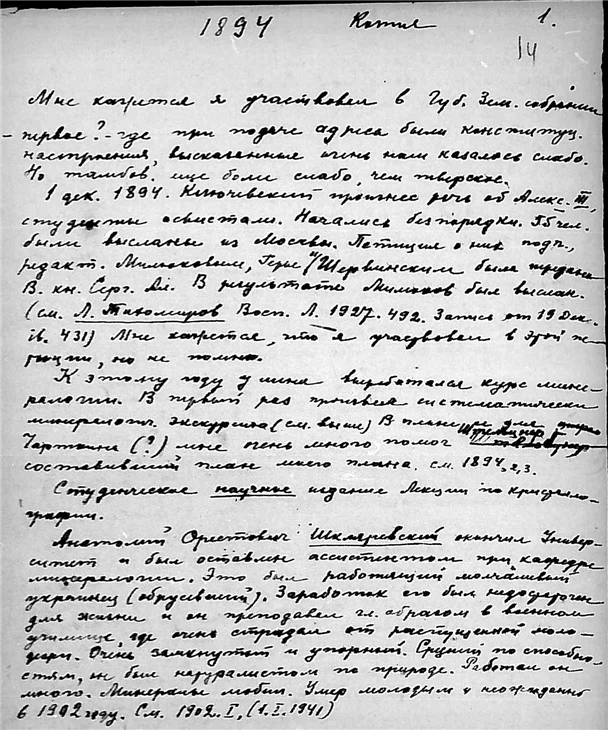 1894 Копия 1.
14
Мне кажется я участвовал в Губ. Зем. собрании
первое? - где при подаче адреса были конституц.
настроения, высказанные очень нам казалось слабо.
Но тамбов. еще боле слабо, чем тверское.
1 дек. 1894. Ключевский произнес речь об Алекс. III,
студенты освистали. Начались беспорядки. чел.
были высланы из Москвы. Петиция о них подп.,
редакт. Милюковым, Герье и Шервинским была передана
В. кн. Серг. Ал. В результате Милюков был выслан.
(см. Л. Тихомиров Восп. Л. 1927- 492. Запись от 19 Дек.
ib. 431) Мне кажется, что я участвовал в этой пе-
тиции, но не помню.
К этому году у меня выработался курс мине-
ралогии. В первый раз провел систематически
минералогич. экскурсии (см. выше) В плане для
(?) мне очень много помог
составивший план моего плана. см. 1894, 2, 3.
Студенческое научное издание Лекции по кристалло-
графии.
Анатолий Орестович Шкляревский окончил Универ-
ситет и был оставлен ассистентом при кафедре
минералогии. Это был работящий молчаливый
украинец (обрусевший). Заработок его был недостаточен
для жизни и он преподавал гл. образом в военном
училище, где очень страдал от распущенной моло-
дежи. Очень замкнутый и упорный. Средний по способно-
стям, он был натуралистом по природе. Работал он
много. Минералы любил. Умер молодым и неожиданно
в 1902 году. См. 1902. I, (1.I.1941)